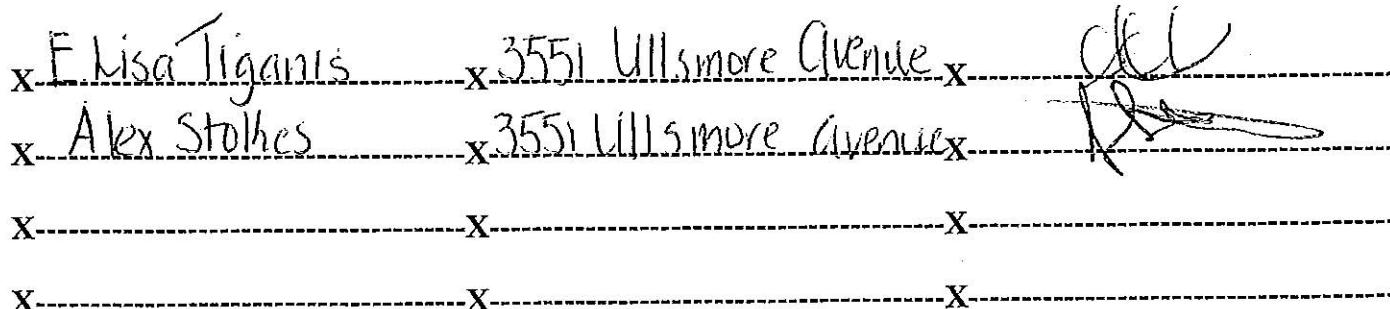 x E Lisa Tiganis x 3551 Ullsmore Avenue x
x Alex Stolhes x 3551 Ullsmore avenue x
x x x
x x x